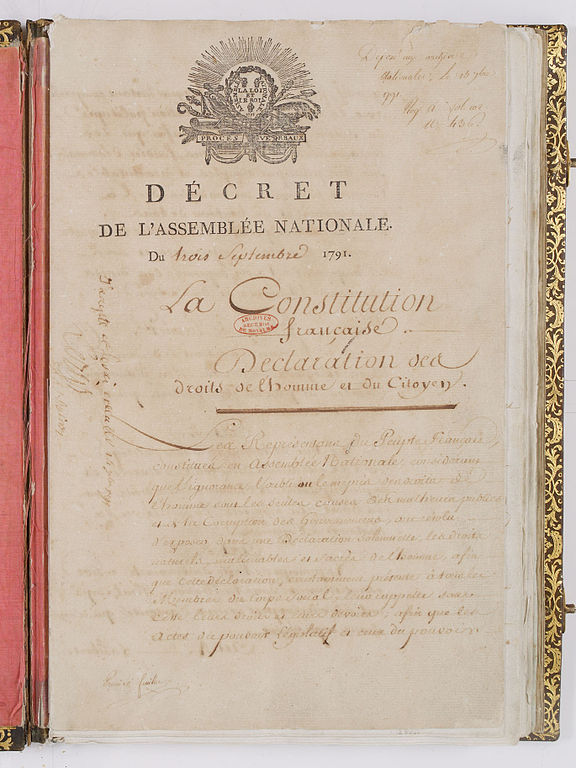 LA LOI
ET
LE ROI
PROCÈS VERBAUX
Déposé aux archives
nationales, le
1791.
DÉCRET
DE L'ASSEMBLÉE NATIONALE.
Du trois Septembre 1791.
La Constitution
française.
ARCHIVES
Déclaration des
droits de l'homme et du Citoyen.
Les Représentans du Peuple Français
constitués en Assemblée Nationale, considérant
que l'ignorance, l'oubli ou le mépris des droits de
l'homme sont les seules causes des malheurs publics
et de la Corruption des Gouvernemens, ont résolu
d'exposer dans une Déclaration solemnelle, les droits
naturels, inaliénables et sacrés de l'homme, afin
que cette déclaration, constamment présente à tous les
Membres du corps social, leur rappelle sans
cesse leurs droits et leurs devoirs; afin que les
Actes du pouvoir législatif et ceux du pouvoir